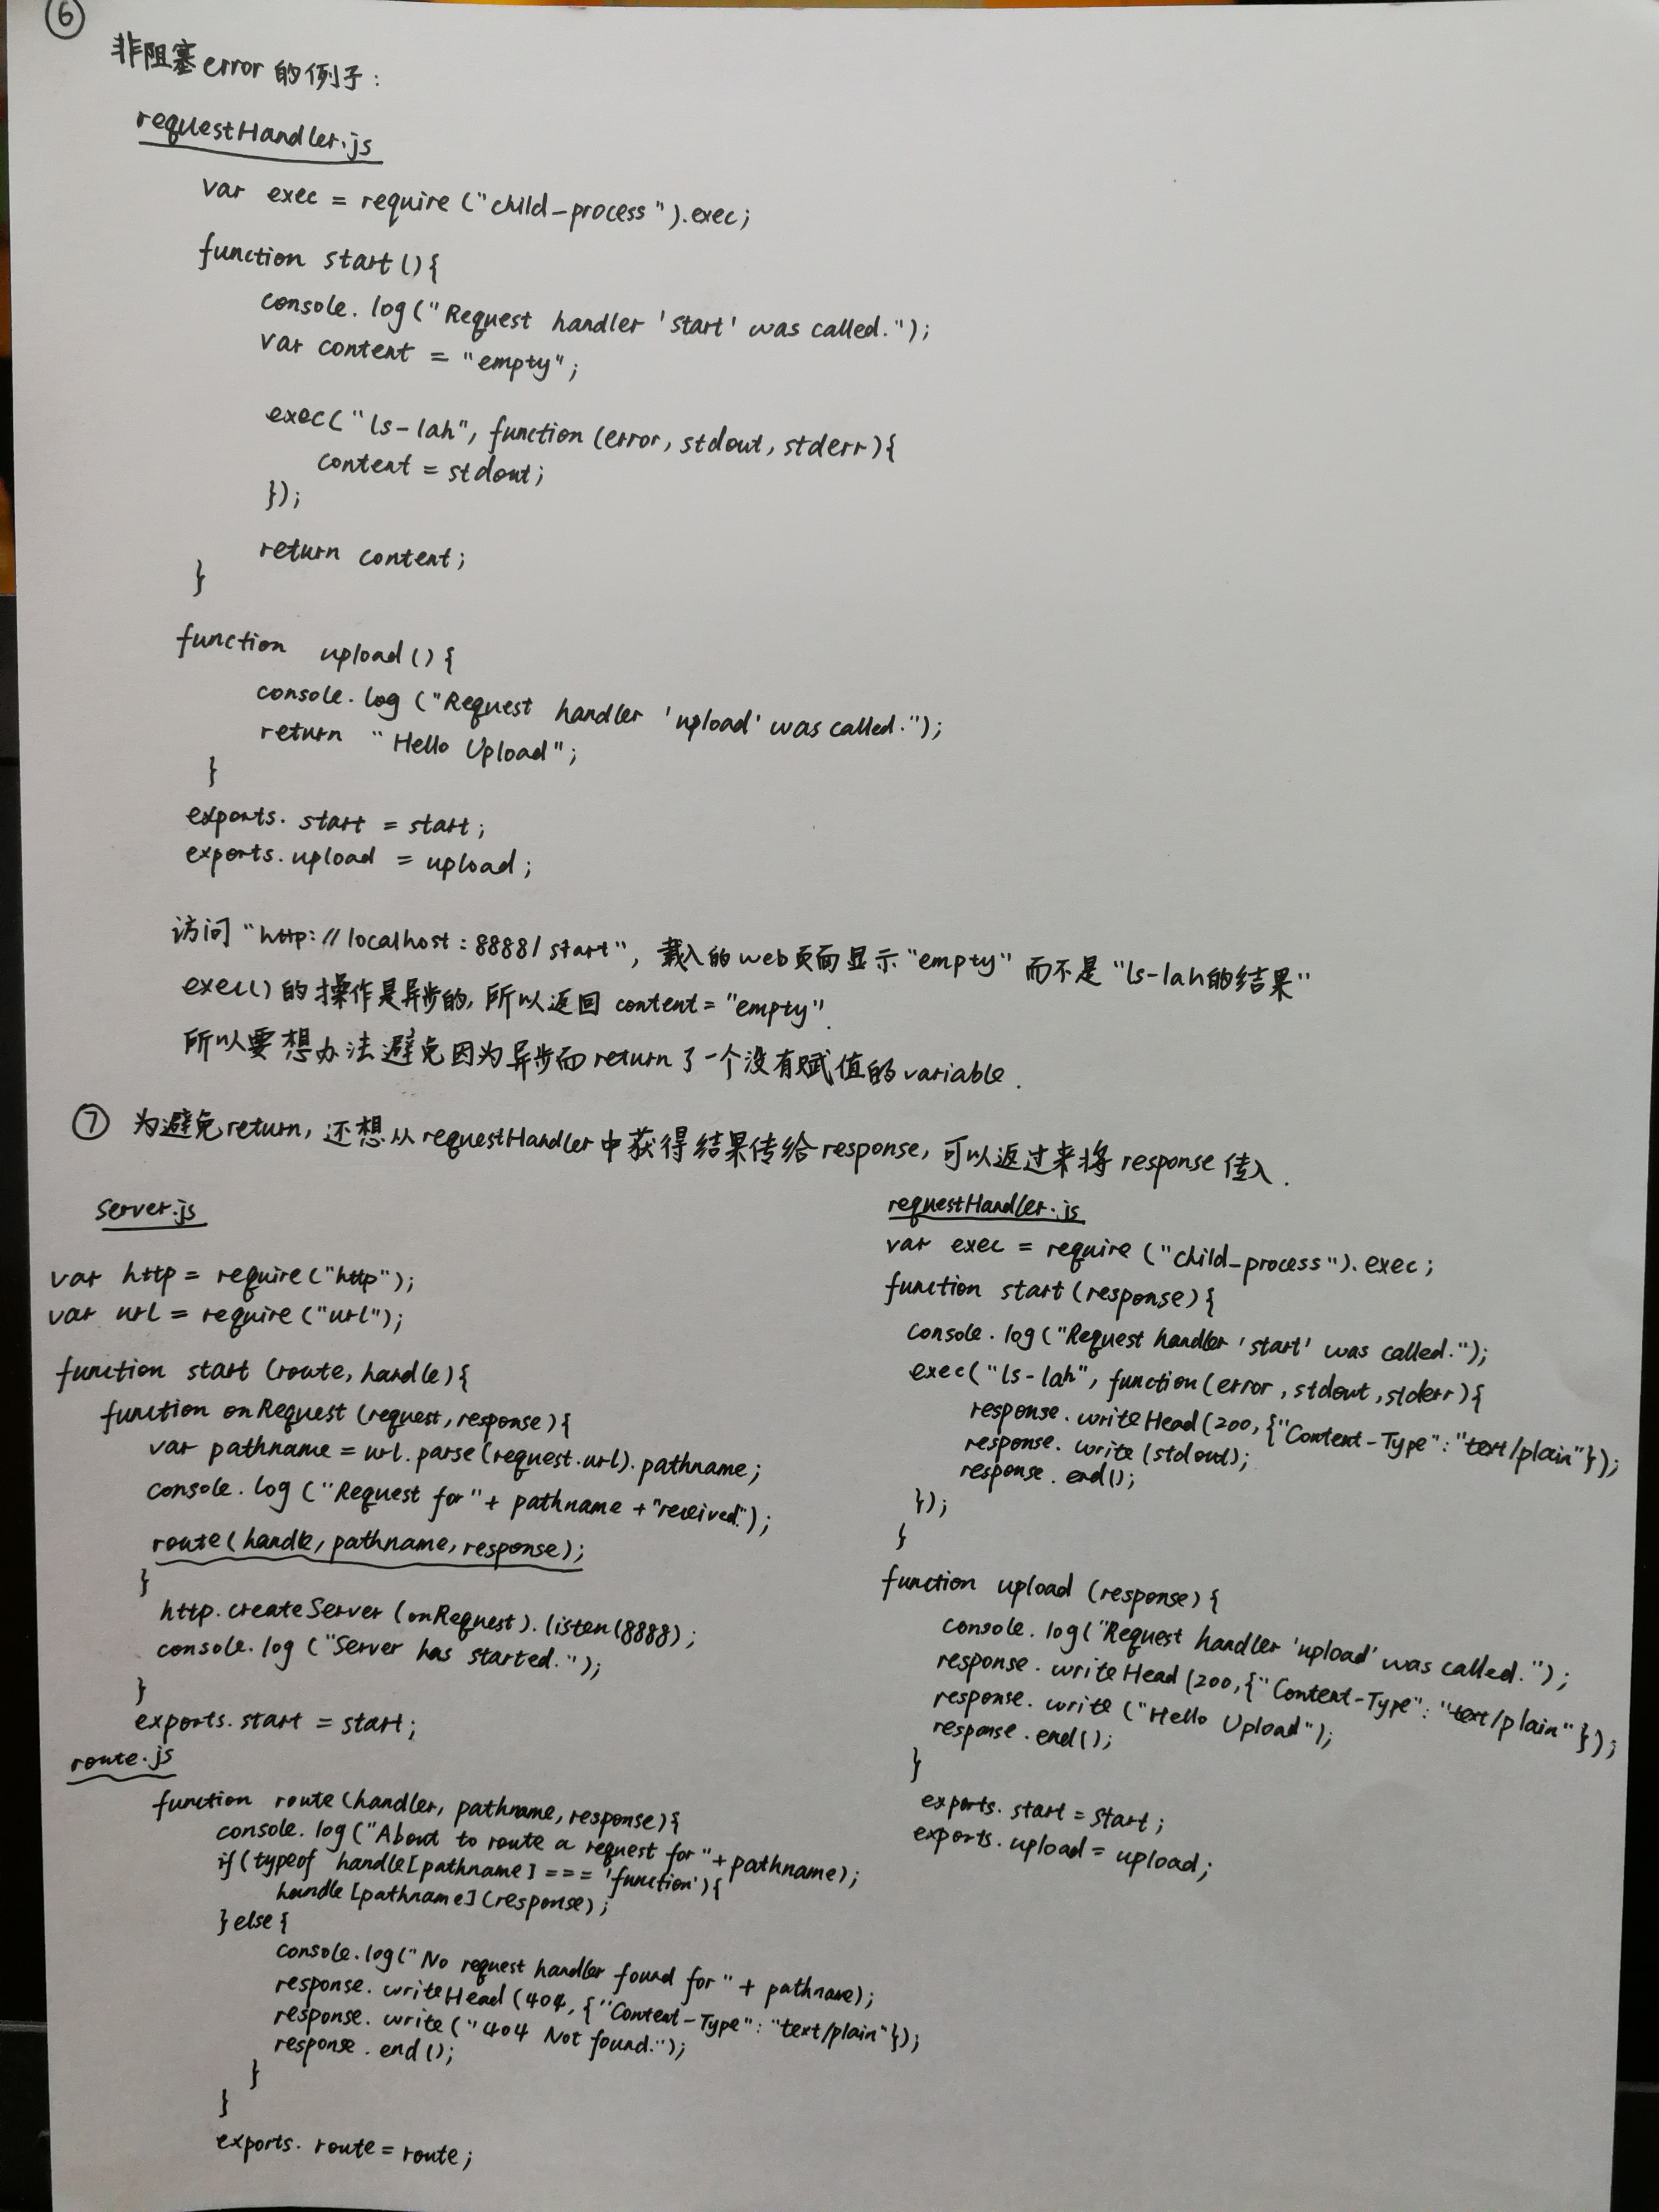 ⑥
非阻塞error的例子:
requestHandler.js
var exec = require ("child_process").exec;
function start(){
console.log("Request handler 'start' was called.");
var content = "empty";
exec("ls-lah", function (error, stdout, stderr){
content = stdout;
});
return content;
}
function upload(){
console.log ("Request handler 'upload' was called.");
return "Hello Upload";
}
exports.start = start;
exports.upload = upload;
访问"http://localhost:8888/start", 载入的web页面显示"empty"而不是"ls-lah的结果"
exec()的操作是异步的, 所以返回 content = "empty".
所以要想办法避免因为异步而return了一个没有赋值的variable.
⑦ 为避免return, 还想从requestHandler中获得结果传给response, 可以返过来将response传入.
server.js
var http = require("http");
var url = require ("url");
function start (route, handle){
function onRequest (request, response){
var pathname = url.parse(request.url).pathname;
console.log ("Request for "+ pathname +"received.");
route(handle, pathname, response);
}
http.createServer (onRequest).listen(8888);
console.log ("Server has started.");
}
exports.start = start;
route.js
function route (handler, pathname, response){
console.log("About to route a request for "+ pathname);
if(typeof handle[pathname] === 'function'){
handle[pathname](response);
}else{
console.log("No request handler found for " + pathname);
response.writeHead (404, {"Content-Type": "text/plain"});
response.write ("404 Not found.");
response.end();
}
}
exports.route = route;
requestHandler.js
var exec = require ("child_process").exec;
function start (response){
console.log("Request handler 'start' was called.");
exec("ls-lah", function(error, stdout, stderr){
response.writeHead(200,{"Content-Type": "text/plain"});
response.write (stdout);
response.end();
});
}
function upload (response){
console.log("Request handler 'upload' was called.");
response.writeHead (200,{"Content-Type": "text/plain"});
response.write ("Hello Upload");
response.end();
}
exports.start = start;
exports.upload = upload;